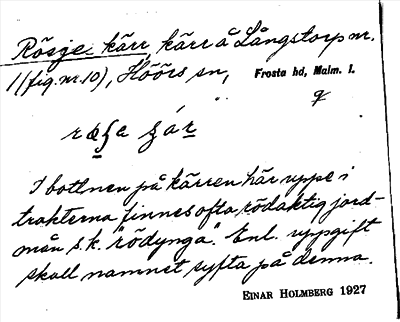 Rösje kärr, kärr å Långstorp nr.
1 (fig. nr. 10), Höörs sn, Frosta hd, Malm. l.
I bottnen på kärren här uppe i
trakterna finnes ofta rödaktig jord-
mån s.k. "rödynga". Enl. uppgift
skall namnet syfta på denna.
EINAR HOLMBERG 1927